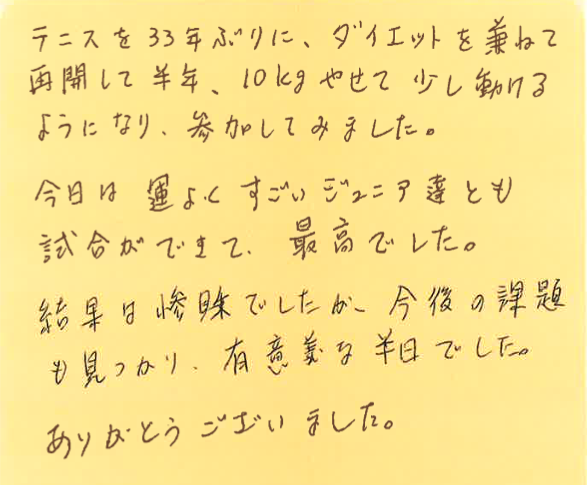 テニスを33年ぶりに、ダイエットを兼ねて
再開して半年、10kgやせて少し動ける
ようになり、参加してみました。
今日は運よくすごいジュニア達とも
試合ができて、最高でした。
結果は惨敗でしたが、今後の課題
も見つかり、有意義な半日でした。
ありがとうございました。